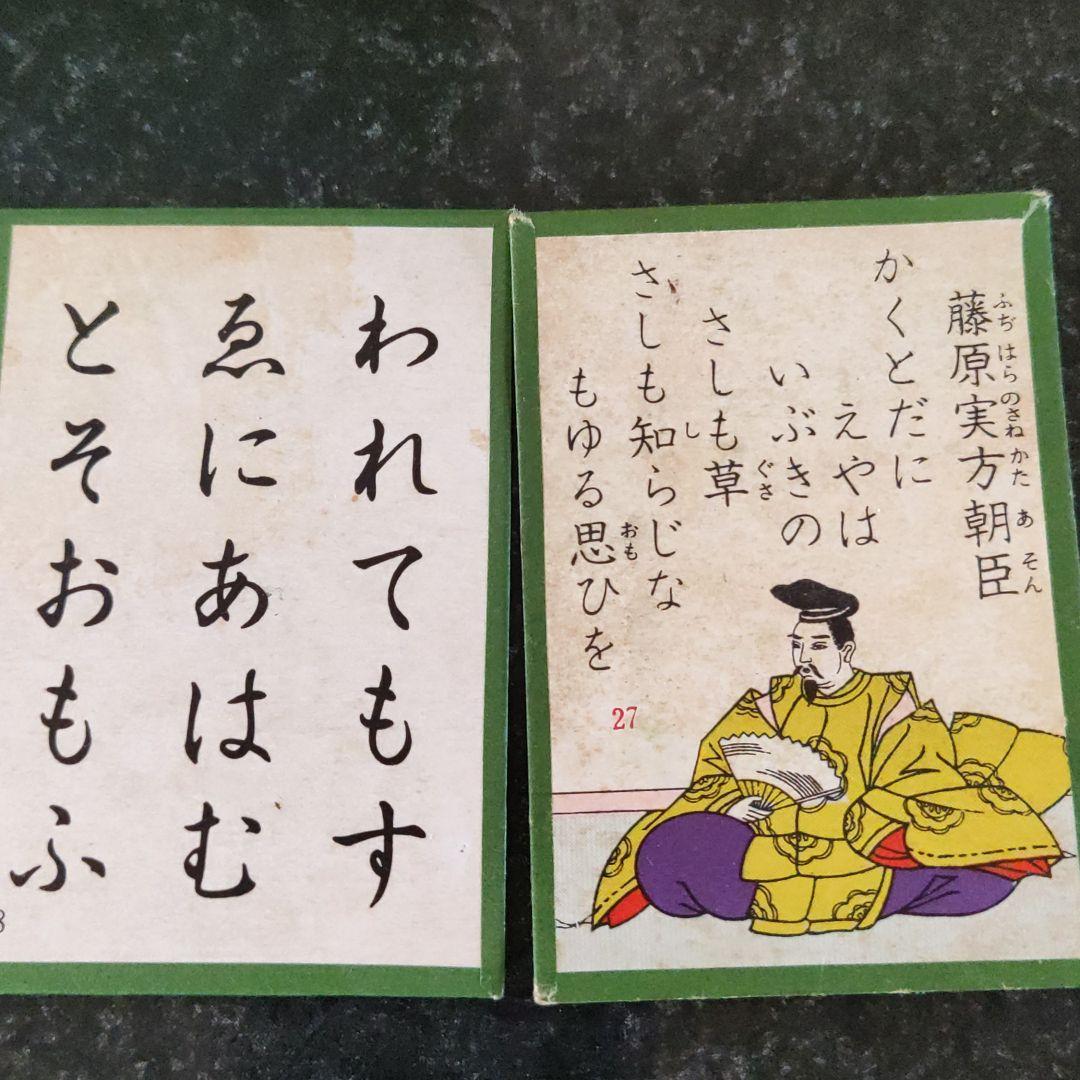 藤原実方朝臣
ふぢはらのさねかたあそん
かくとだに
えやは
いぶきの
さしも草
ぐさ
さしも知らじな
し
もゆる思ひを
おも
27
われてもす
ゑにあはむ
とそおもふ